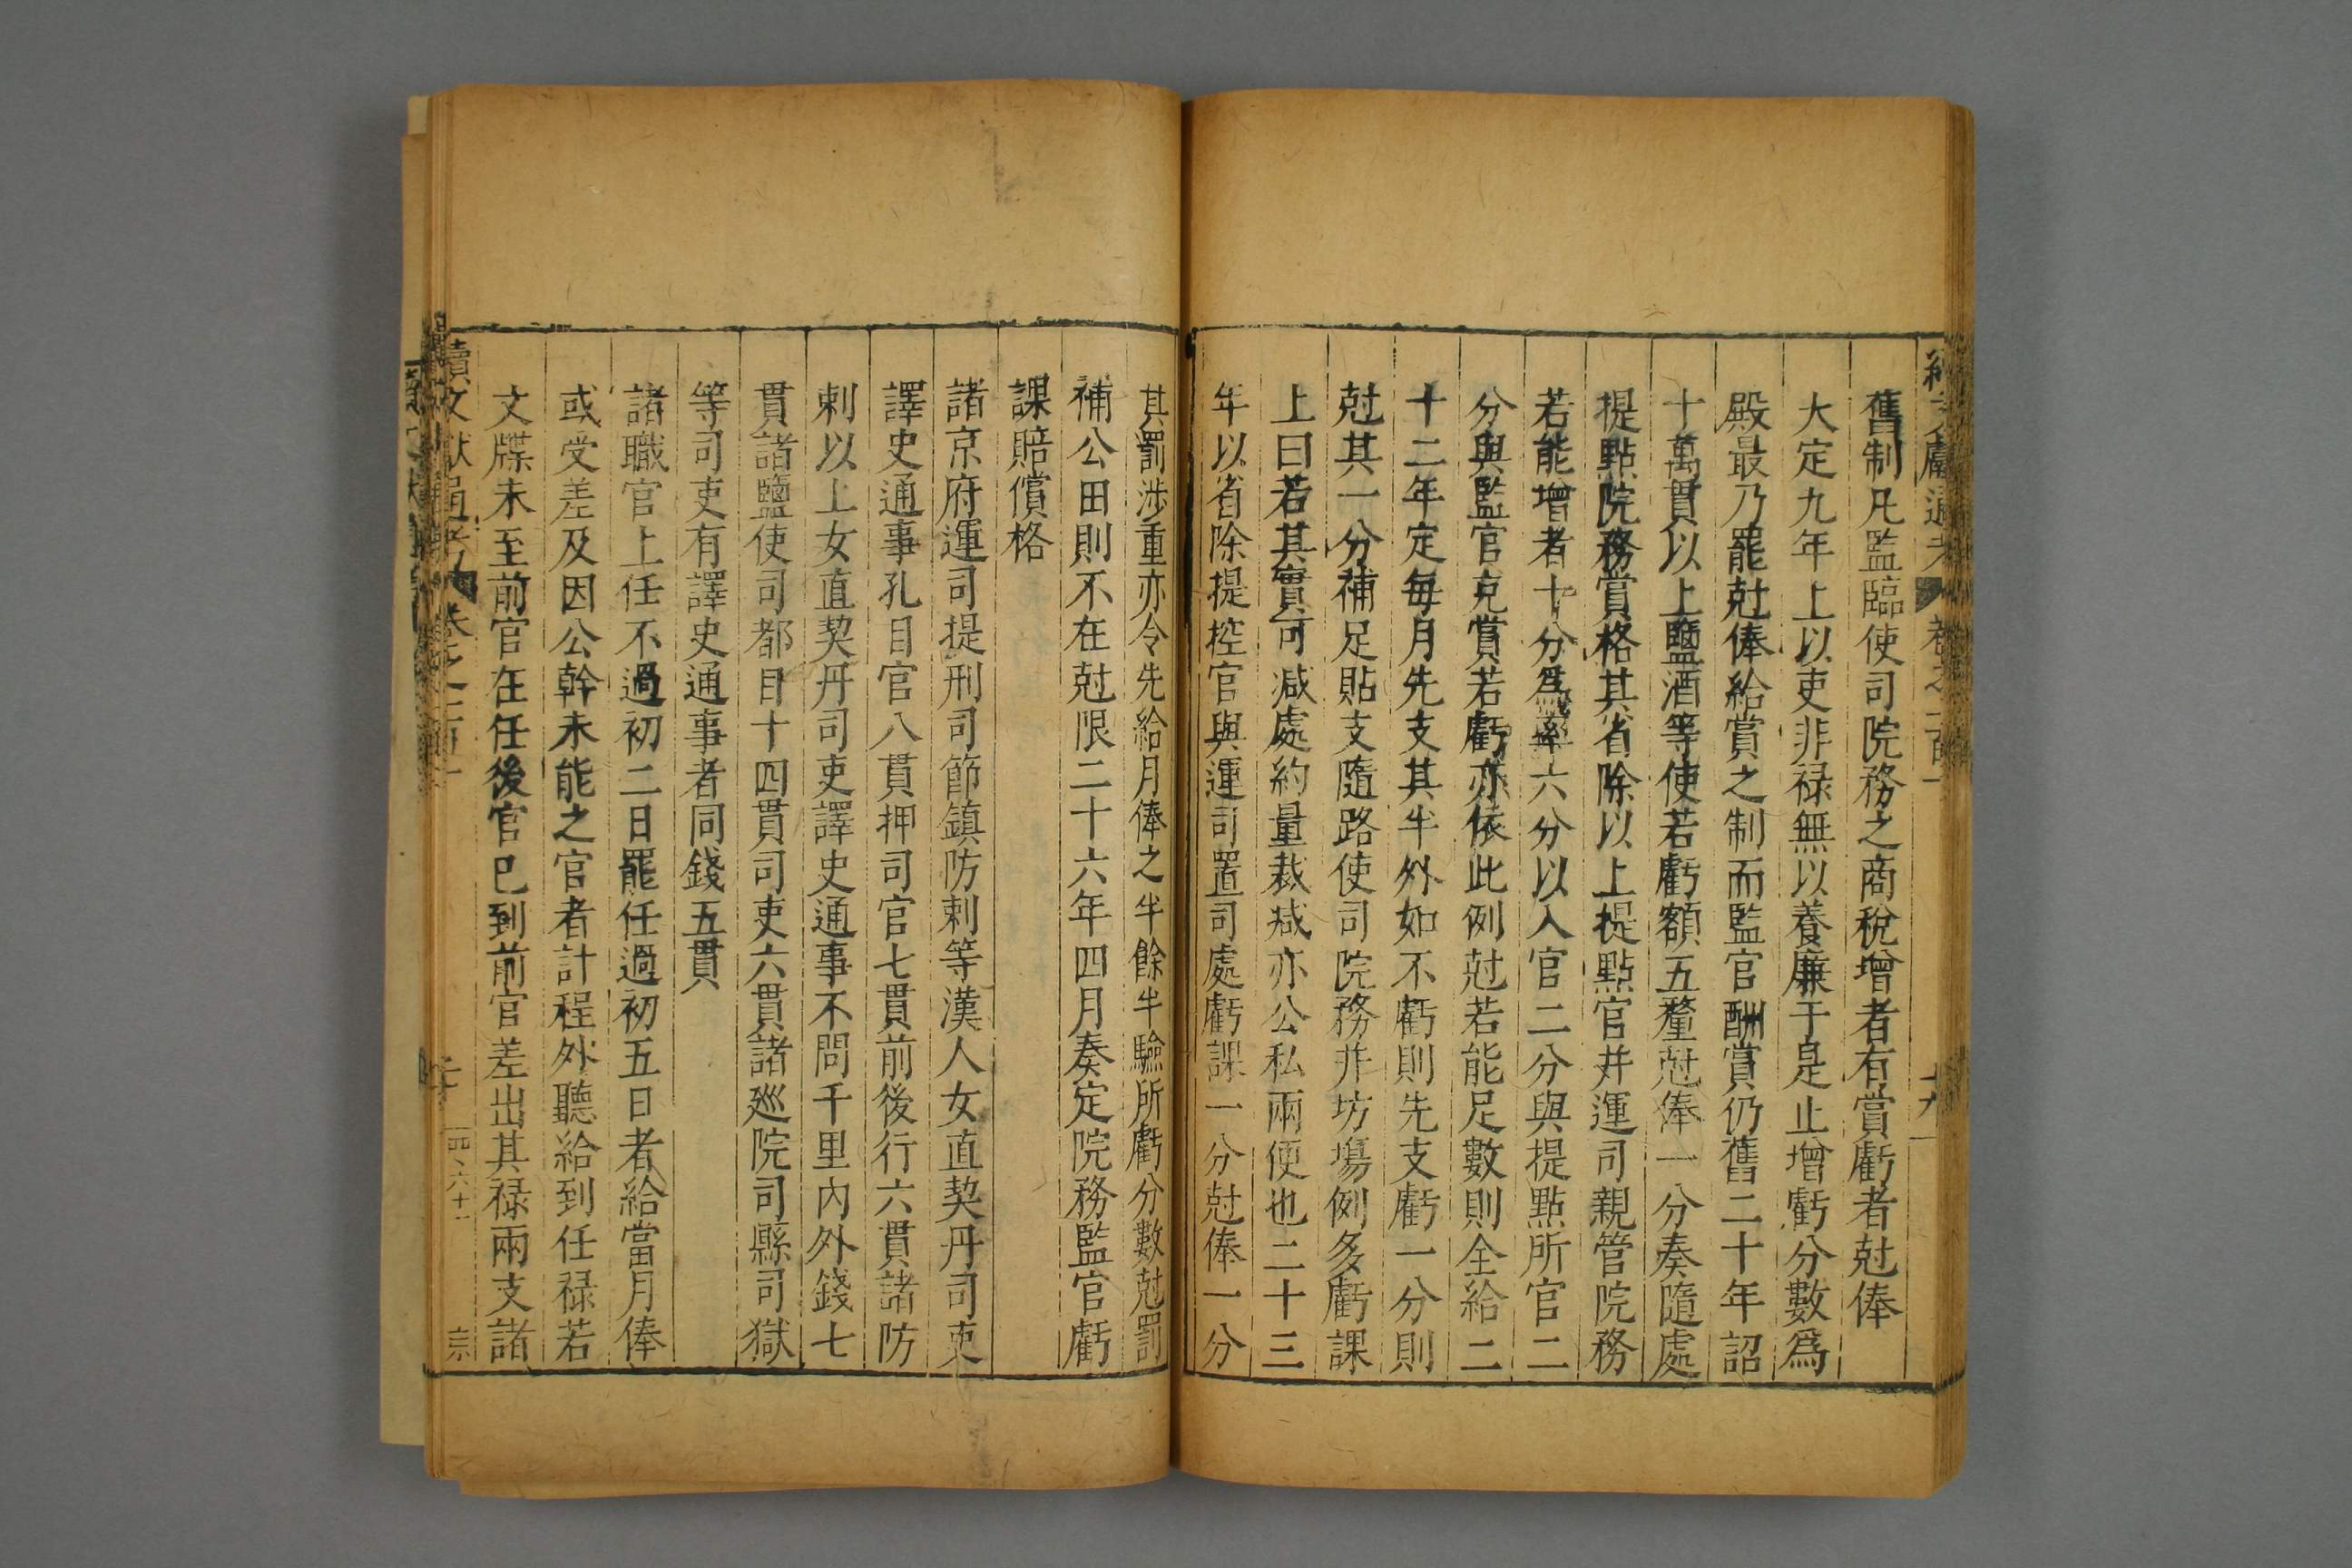 續文獻通考 卷之一百一 十九
舊制凡監臨使司院務之商稅增者有賞虧者尅俸
大定九年上以吏非祿無以養廉于是止增虧分數爲
殿最乃罷尅俸給賞之制而監官酬賞仍舊二十年詔
十萬貫以上鹽酒等使若虧額五釐尅俸一分奏隨處
提點院務賞格其省除以上提點官并運司親管院務
若能增者十分爲率六分以入官二分與提點所官二
分與監官充賞若虧亦依此例尅若能足數則全給二
十二年定每月先支其半外如不虧則先支虧一分則
尅其一分補足貼支隨路使司院務并坊場例多虧課
上曰若其實可减處約量裁减亦公私兩便也二十三
年以省除提控官與運司置司處虧課一分尅俸一分
其罰涉重亦令先給月俸之半餘半驗所虧分數尅罰
補公田則不在尅限二十六年四月奏定院務監官虧
課賠償格
諸京府運司提刑司節鎮防刺等漢人女直契丹司吏
譯史通事孔目官八貫押司官七貫前後行六貫諸防
刺以上女直契丹司吏譯史通事不問千里內外錢七
貫諸鹽使司都目十四貫司吏六貫諸巡院司縣司獄
等司吏有譯史通事者同錢五貫
諸職官上任不過初二日罷任過初五日者給當月俸
或受差及因公幹未能之官者計程外聽給到任祿若
文牒未至前官在任後官巳到前官差出其祿兩支諸
續文獻通考 卷之一百一 四六十一 宗